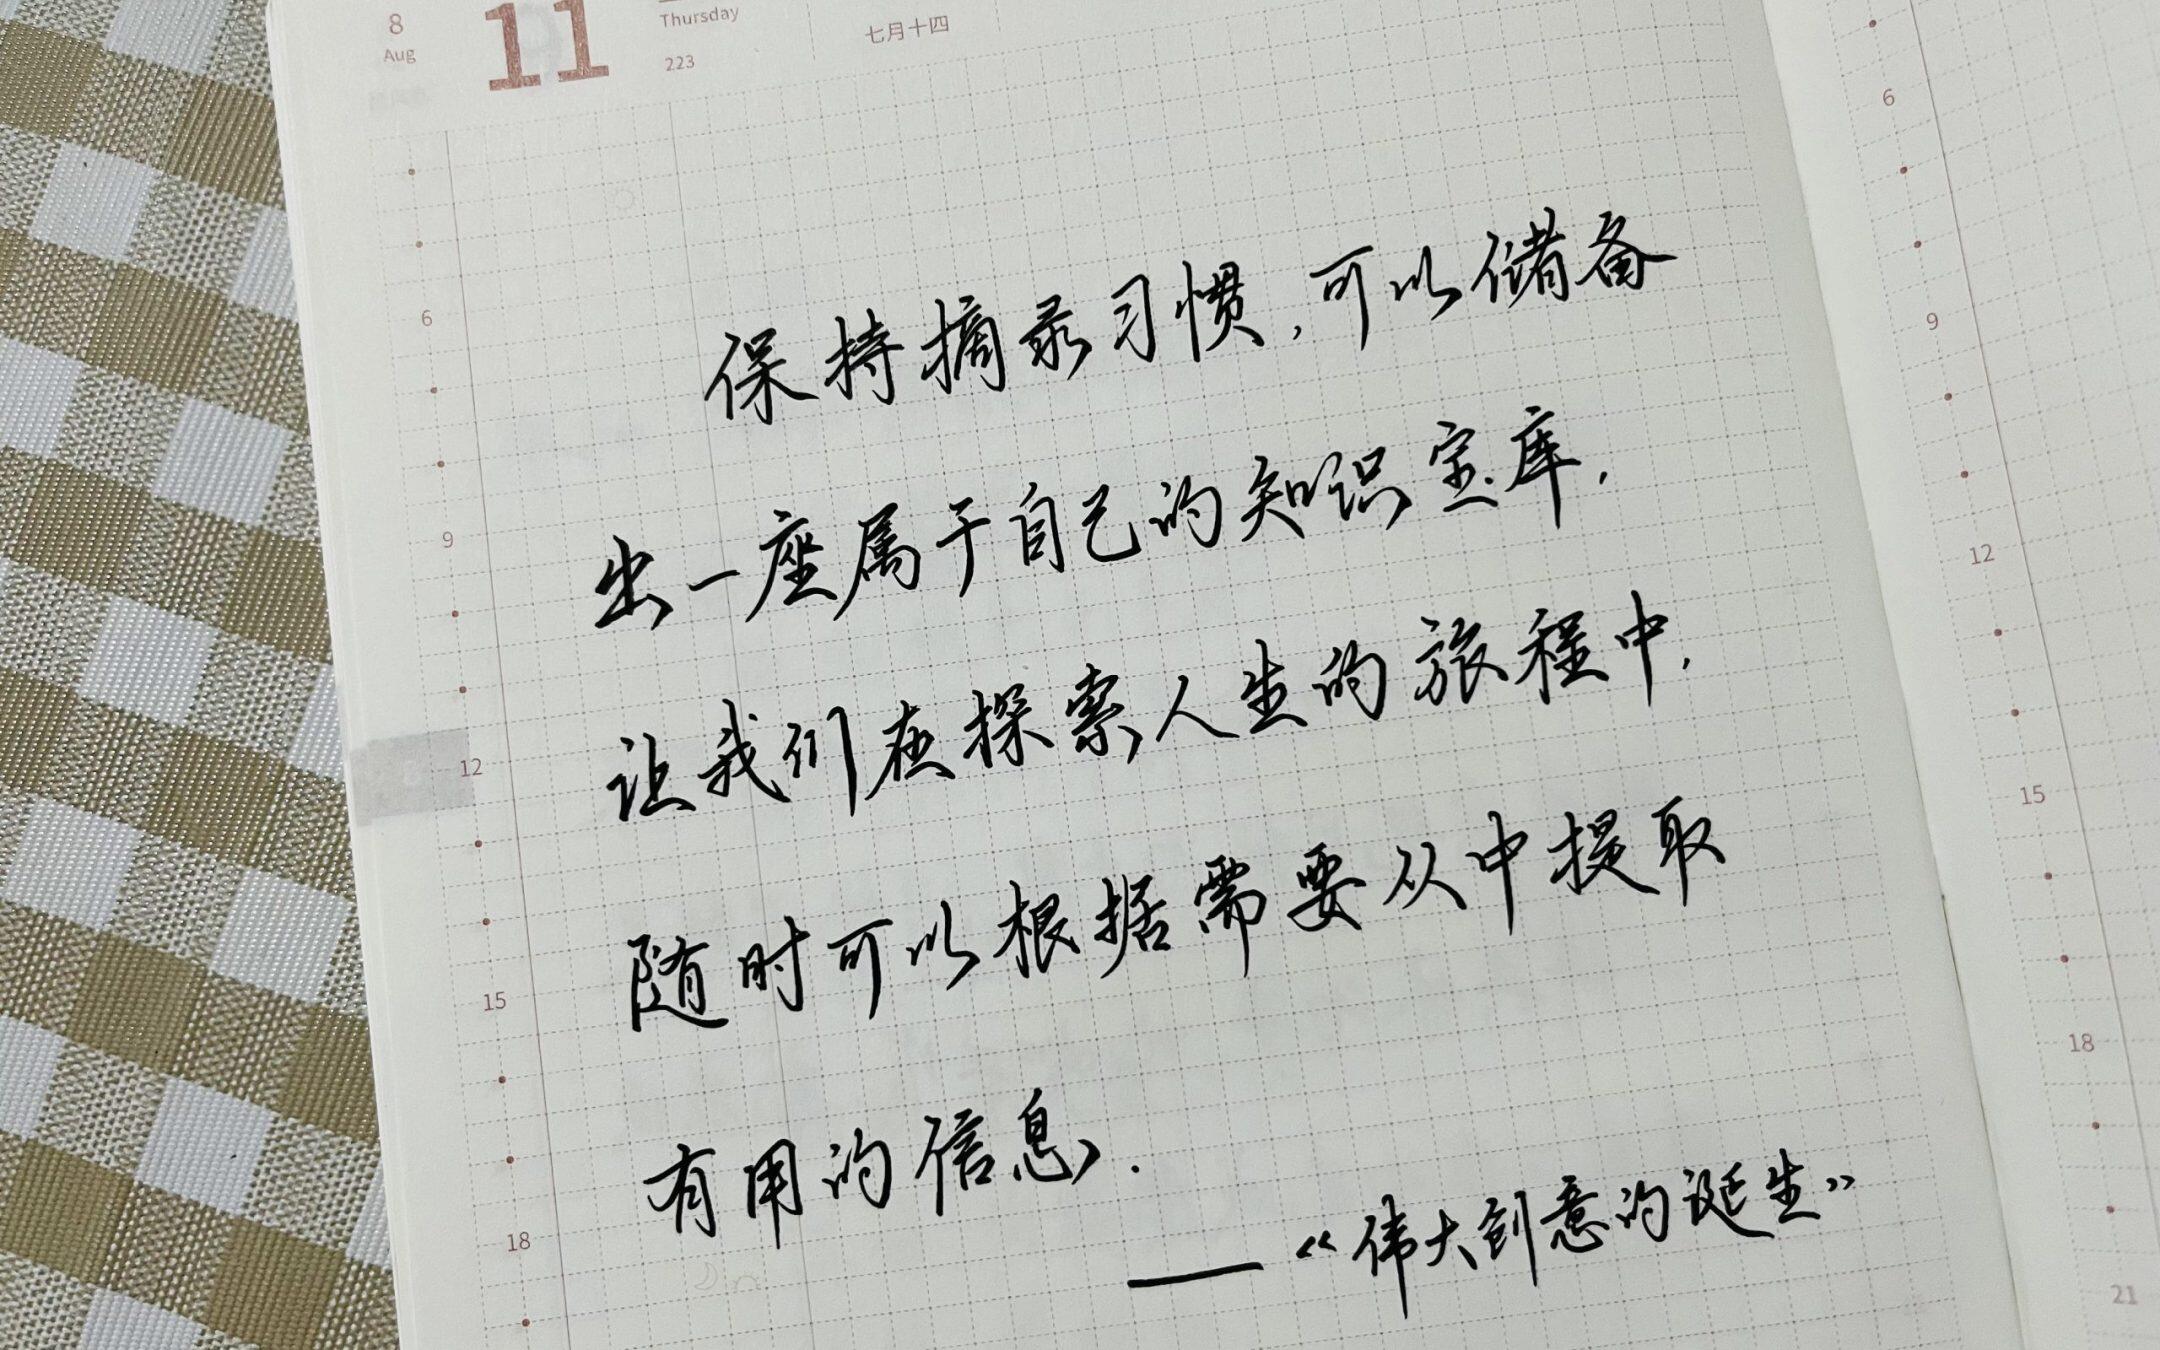 8
Aug
11
Thursday
223
七月十四
保持摘录习惯,可以储备
出一座属于自己的知识宝库,
让我们在探索人生的旅程中,
随时可以根据需要从中提取
有用的信息.
——《伟大创意的诞生》
6
9
12
15
18
6
9
12
15
18
21